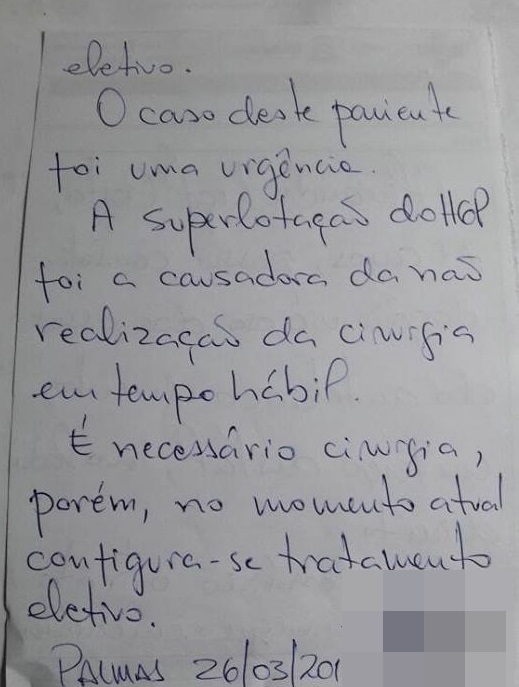 eletivo.
O caso deste paciente
foi uma urgência.
A superlotação do HGP
foi a causadora da não
realização da cirurgia
em tempo hábil.
É necessário cirurgia,
porém, no momento atual
configura-se tratamento
eletivo.
PALMAS 26/03/201